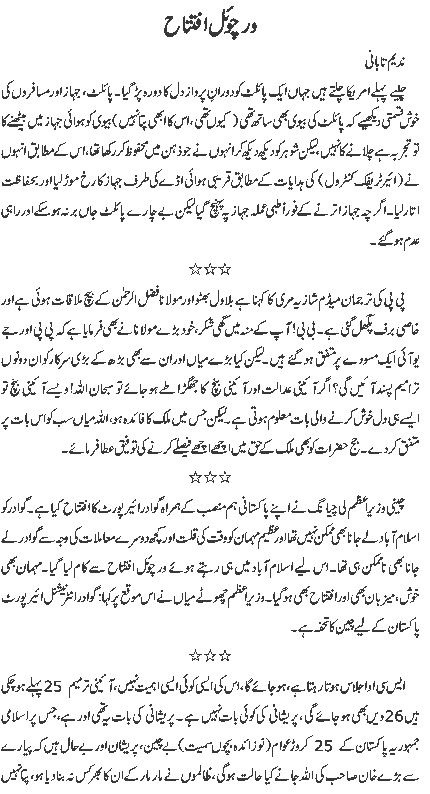 ورچوئل افتتاح
ندیم تابانی
چلیے پہلے امریکا چلتے ہیں جہاں ایک پائلٹ کو دوران پرواز دل کا دورہ پڑ گیا۔ پائلٹ، جہاز اور مسافروں کی
خوش قسمتی دیکھیے کہ پائلٹ کی بیوی بھی ساتھ تھی ( کیوں تھی، اس کا ابھی پتا نہیں) بیوی کو ہوائی جہاز میں بیٹھنے کا
تو تجربہ ہے چلانے کا نہیں، لیکن شوہر کو دیکھ دیکھ کر انہوں نے جو ذہن میں محفوظ کر رکھا تھا، اس کے مطابق انہوں
نے (ائیر ٹریفک کنٹرول) کی ہدایات کے مطابق قریبی ہوائی اڈے کی طرف جہاز کا رخ موڑ لیا اور بحفاظت
اتار لیا۔ اگر چہ جہاز اترنے کے فوراً طبی عملہ جہاز پہ پہنچ گیا لیکن بے چارے پائلٹ جاں بر نہ ہو سکے اور راہی
عدم ہو گئے۔
☆☆☆
پی پی کی ترجمان میڈم شازیہ مری کا کہنا ہے بلاول بھٹو اور مولانا فضل الرحمٰن کے بیچ ملاقات ہوئی ہے اور
خاصی برف پگھل گئی ہے۔ بی بی! آپ کے منہ میں گھی شکر، خود بڑے مولانا نے بھی فرمایا ہے کہ پی پی اور جے
یو آئی ایک مسودے پر متفق ہو گئے ہیں۔ لیکن کیا بڑے میاں اور ان سے بھی بڑھ کے بڑی سرکار کو ان دونوں
ترامیم پسند آئیں گی؟ اگر آئینی عدالت اور آئینی بیچ کا جھگڑا طے ہو جائے تو سبحان اللہ! ویسے آئینی بیچ تو
ایسے ہی دل خوش کرنے والی بات معلوم ہوتی ہے۔ لیکن جس میں ملک کا فائدہ ہو، اللہ میاں سب کو اس بات پر
متفق کر دے۔ جج حضرات کو بھی ملک کے حق میں اچھے اچھے فیصلے کرنے کی توفیق عطا فرمائے۔
☆☆☆
چینی وزیر اعظم لی چیانگ نے اپنے پاکستانی ہم منصب کے ہمراہ گوادر ائیر پورٹ کا افتتاح کیا ہے۔ گوادر کو
اسلام آباد لے جانا بھی ممکن نہیں تھا اور عظیم مہمان کو وقت کی قلت اور کچھ دوسرے معاملات کی وجہ سے گوادر لے
جانا بھی ناممکن ہی تھا۔ اس لیے اسلام آباد میں ہی رہتے ہوئے ورچوئل افتتاح سے کام لیا گیا۔ مہمان بھی
خوش، میزبان بھی اور افتتاح بھی ہو گیا۔ وزیر اعظم چھوٹے میاں نے اس موقع پر کہا: گوادر انٹرنیشنل ائیر پورٹ
پاکستان کے لیے چین کا تحفہ ہے۔
☆☆☆
ایس سی او اجلاس ہوتا رہتا ہے، ہو جائے گا، اس کی ایسی کوئی ایسی اہمیت نہیں، آئینی ترمیم 25 پہلے ہو چکی
ہیں 26 ویں بھی ہو جائے گی، پریشانی کی کوئی بات نہیں ہے۔ پریشانی کی بات یہ تھی اور ہے، جس پر اسلامی
جمہوریہ پاکستان کے 25 کروڑ عوام (نوزائدہ بچوں سمیت) بے چین، پریشان اور بے حال ہیں کہ پیارے
سے بڑے خان صاحب کی اللہ جانے کیا حالت ہو گی، ظالموں نے مار مار کے ان کا بھرکس نہ بنا دیا ہو، پتا نہیں